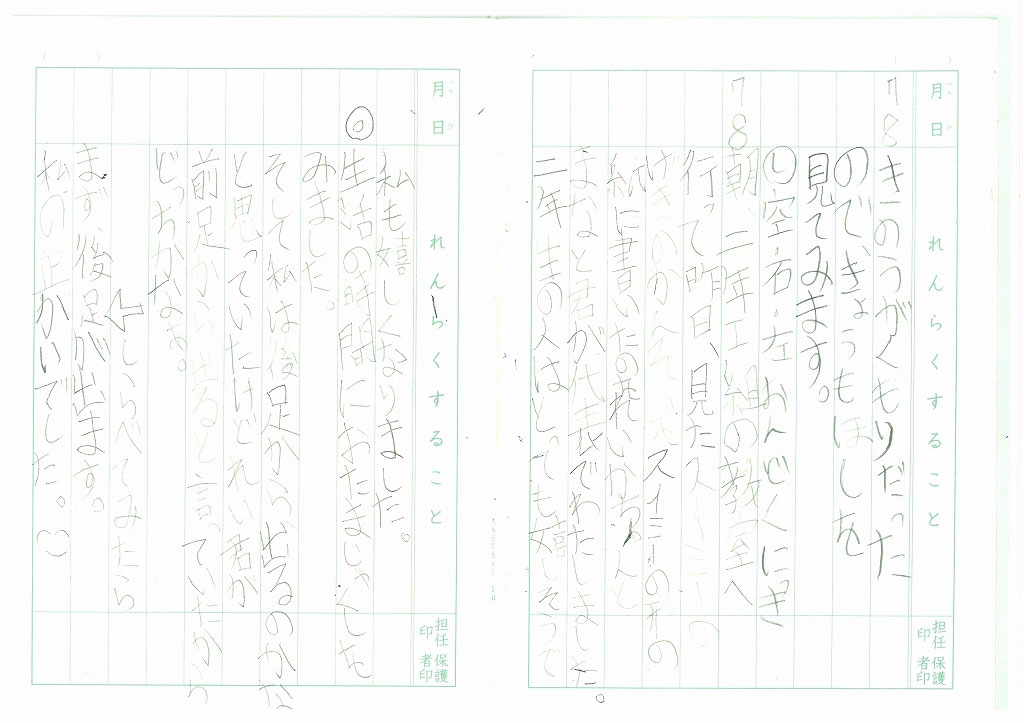 月日 れんらくすること 担任印 保護者印
7 8 きのうがくもりだった
のできょうもほしを
見てみます。
し 空・右・左 おんどくにっき
7 8 朝、二年工組の教室へ
行って昨日、見たスイミーの
スイミーの形の
紙に書いたの
まなと君が代表でわたしました。
二年生の人はとっても嬉しそうで
月日 れんらくすること 担任印 保護者印
私も嬉しくなりました。
◎ 生活の時間におたまじゃくしを
みました。
そして私は後足から出るのかな
と思っていたけどれい君が
前足から出ると言っていたから
どっちかなぁ。
⇩しらべてみたら
まず、後足が出ます。
私の正かいでした。